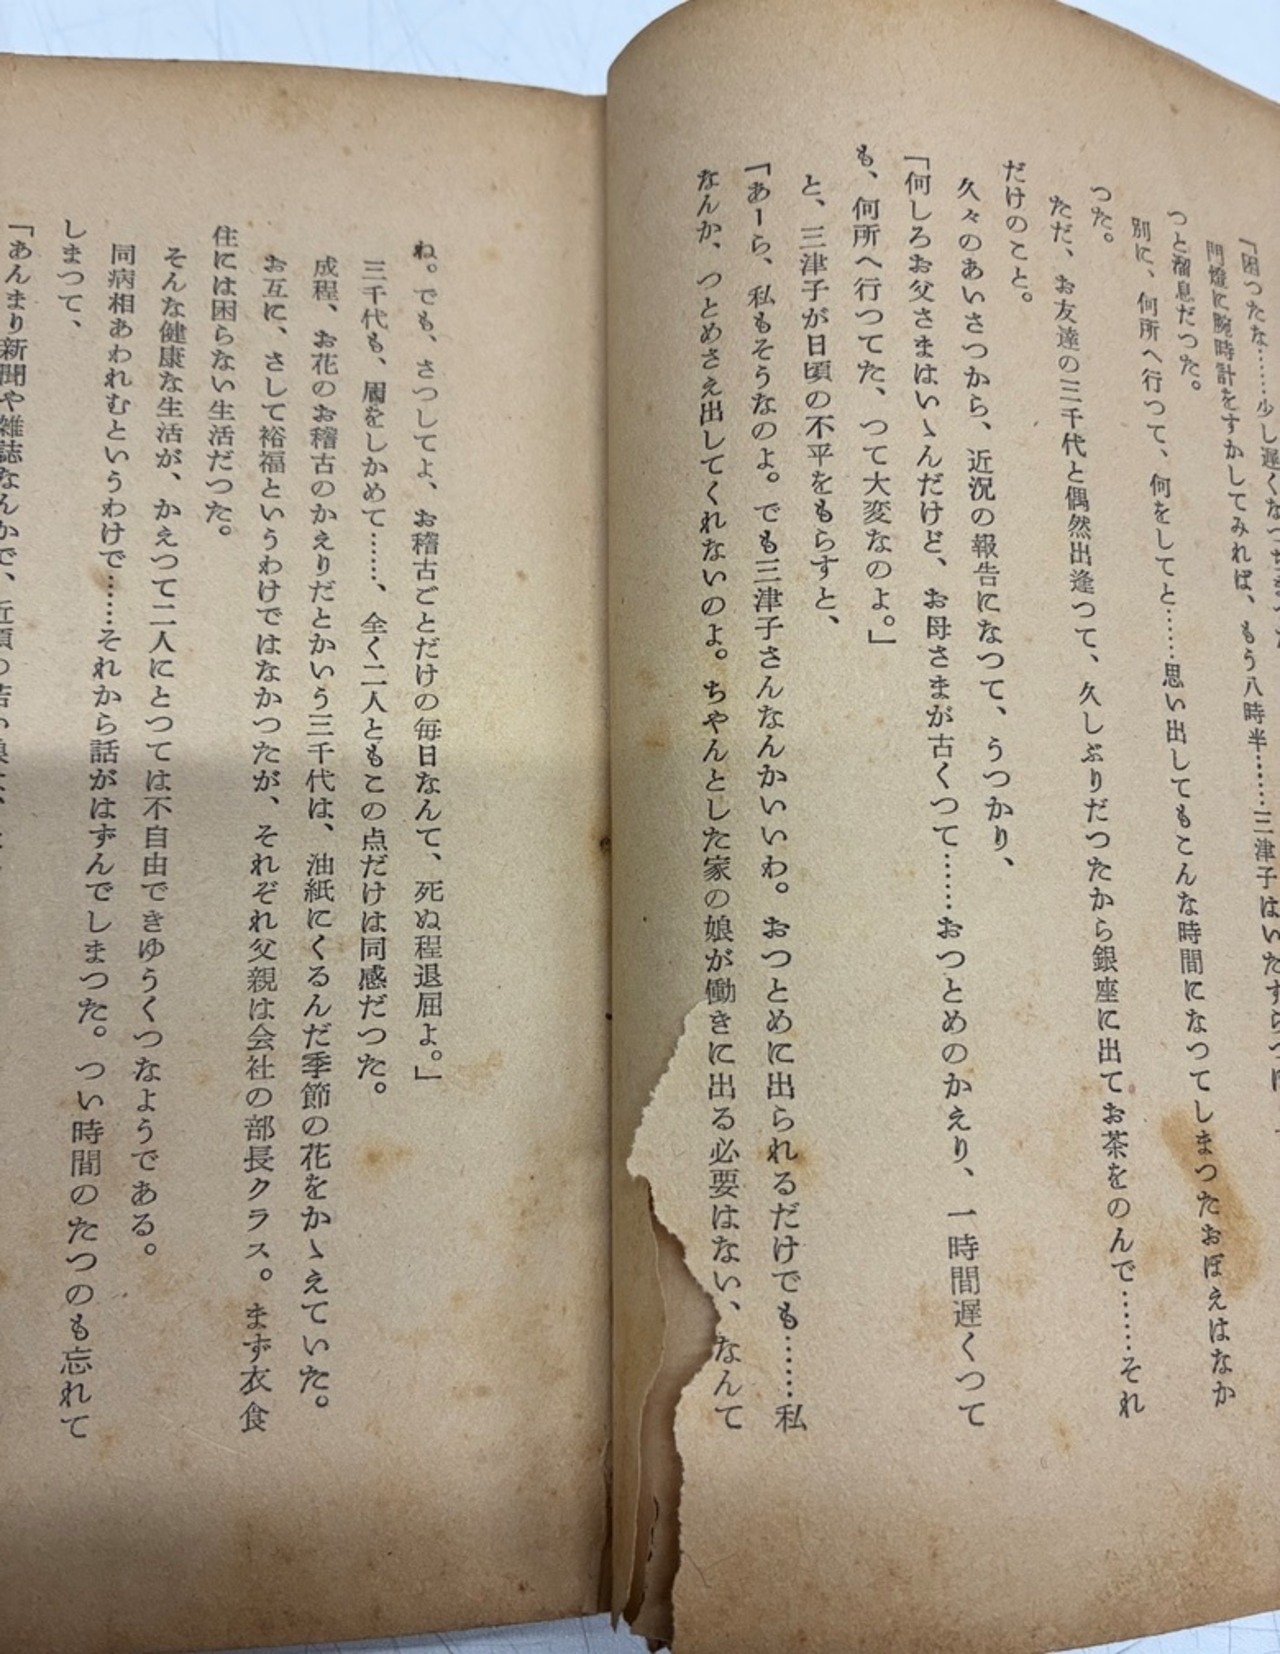 「困つたな……少し遅くなつちまつた
門燈に腕時計をすかしてみれば、もう八時半……三津子はいたずらつぽ
つと溜息だつた。
別に、何所へ行つて、何をしてと……思い出してもこんな時間になつてしまつたおぼえはなか
つた。
ただ、お友達の三千代と偶然出逢つて、久しぶりだつたから銀座に出てお茶をのんで……それ
だけのこと。
久々のあいさつから、近況の報告になつて、うつかり、
「何しろお父さまはいゝんだけど、お母さまが古くつて……おつとめのかえり、一時間遅くつて
も、何所へ行つてた、つて大変なのよ。」
と、三津子が日頃の不平をもらすと、
「あーら、私もそうなのよ。でも三津子さんなんかいいわ。おつとめに出られるだけでも……私
なんか、つとめさえ出してくれないのよ。ちやんとした家の娘が働きに出る必要はない、なんて
ね。でも、さつしてよ、お稽古ごとだけの毎日なんて、死ぬ程退屈よ。」
三千代も、眉をしかめて……、全く二人ともこの点だけは同感だつた。
成程、お花のお稽古のかえりだとかいう三千代は、油紙にくるんだ季節の花をかゝえていた。
お互に、さして裕福というわけではなかつたが、それぞれ父親は会社の部長クラス。まず衣食
住には困らない生活だつた。
そんな健康な生活が、かえつて二人にとつては不自由できゆうくつなようである。
同病相あわれむというわけで……それから話がはずんでしまつた。つい時間のたつのも忘れて
しまつて、
「あんまり新聞や雑誌なんかで、近頃の若い娘は、